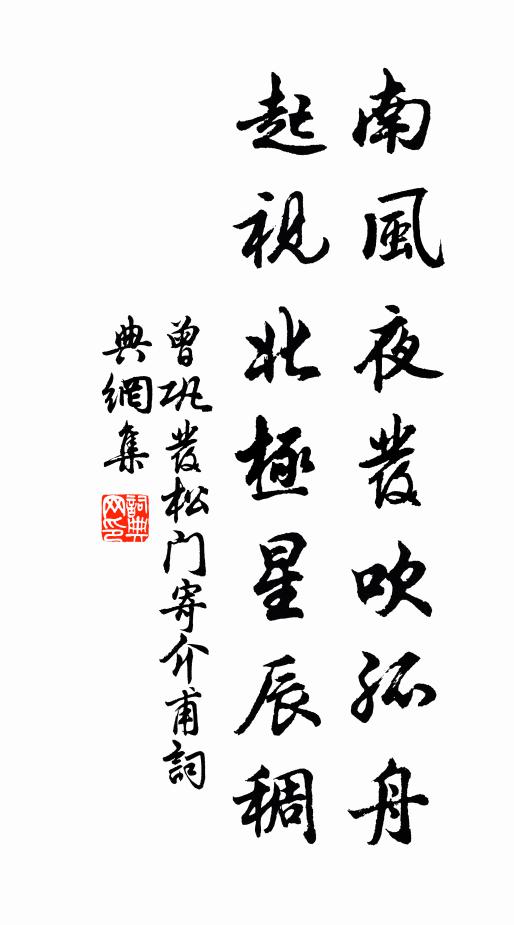 南風夜發吹孤舟
起視北極星辰稠
曾巩發松门寄介甫詞
典網集
詞典
网印